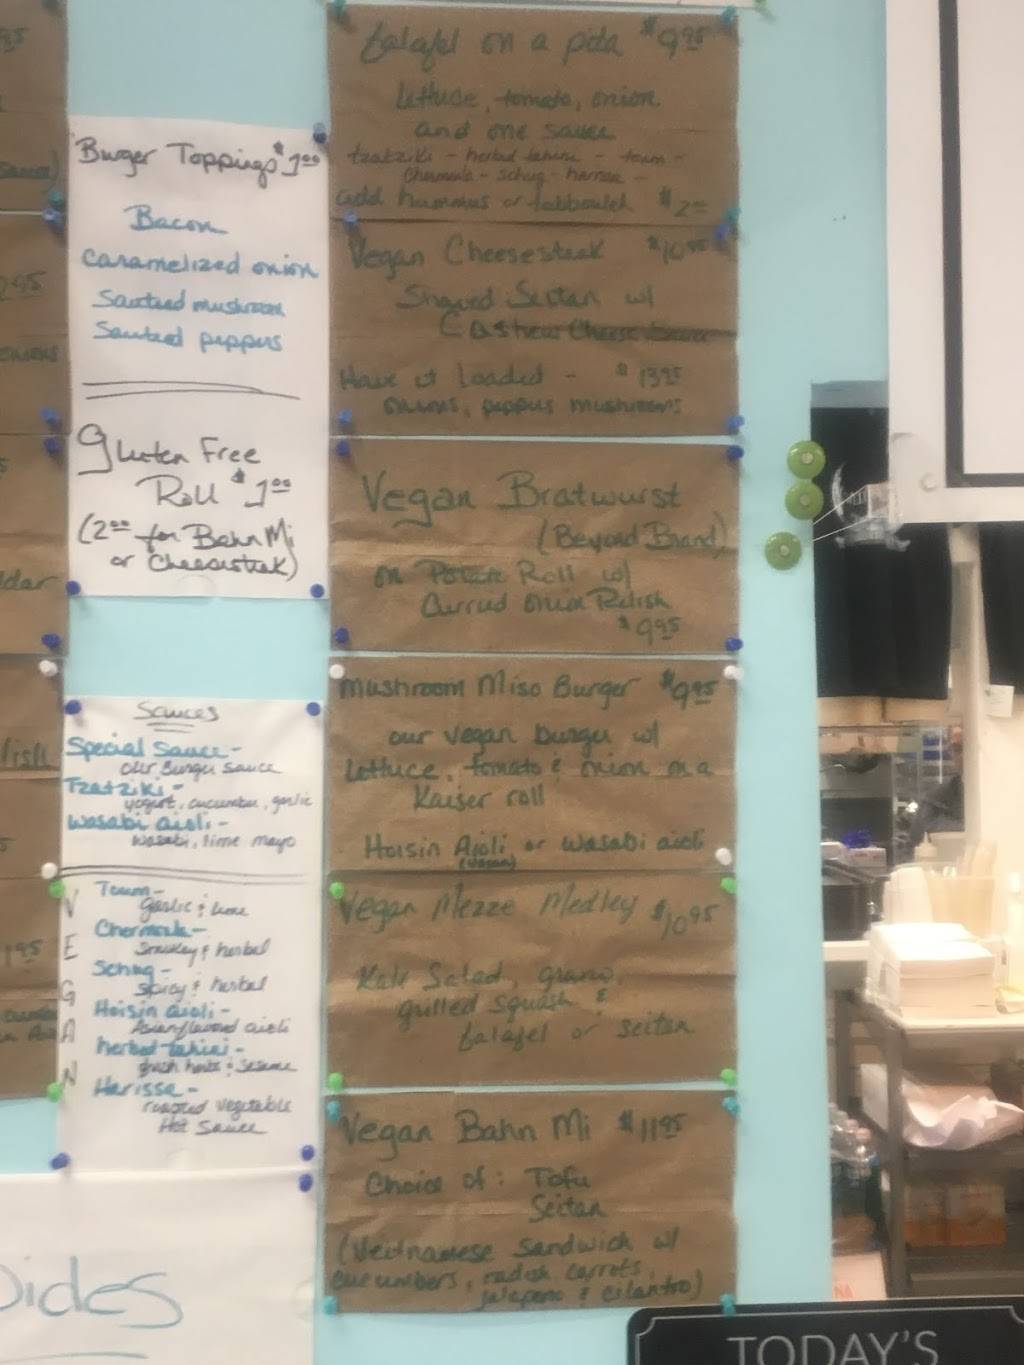 Burger Toppings $1.00
Bacon
Caramelized onion
Sautéed mushroom
Sautéed peppers
Gluten Free
Roll $1.00
(2.00 for Bahn Mi
or Cheesesteak)
Sauces
Special Sauce-
our Burger sauce
Tzatziki-
yogurt, cucumber, garlic
Wasabi aioli-
wasabi, lime mayo
VEGAN
Toum-
Garlic & lime
Chermoula-
Smokey & herbal
Schug-
Spicy & herbal
Hoisin aioli-
Asian flavored aioli
herbed tahini-
fresh herbs & sesame
Harissa-
roasted vegetable
Hot Sauce
Sides
falafel on a pita $9.95
lettuce, tomato, onion
and one sauce
tzatziki - herbed tahini - toum -
Chermoula - schug - harissa -
add hummus or tabbouleh $2.00
Vegan Cheesesteak $10.95
Shaved Seitan w/
Cashew Cheese Sauce
Have it Loaded - $13.95
onions, peppers mushrooms
Vegan Bratwurst
(Beyond Brand)
on Potato Roll w/
Curried onion Relish
$9.95
Mushroom Miso Burger $9.95
our vegan burger w/
lettuce, tomato & onion on a
Kaiser roll
Hoisin Aioli or wasabi aioli
(vegan)
Vegan Mezze Medley $10.95
Kale Salad, grains,
grilled squash &
falafel or seitan
Vegan Bahn Mi $11.95
Choice of: Tofu
Seitan
(Vietnamese Sandwich w/
cucumbers, radish, carrots,
jalapeno & cilantro)
TODAY'S